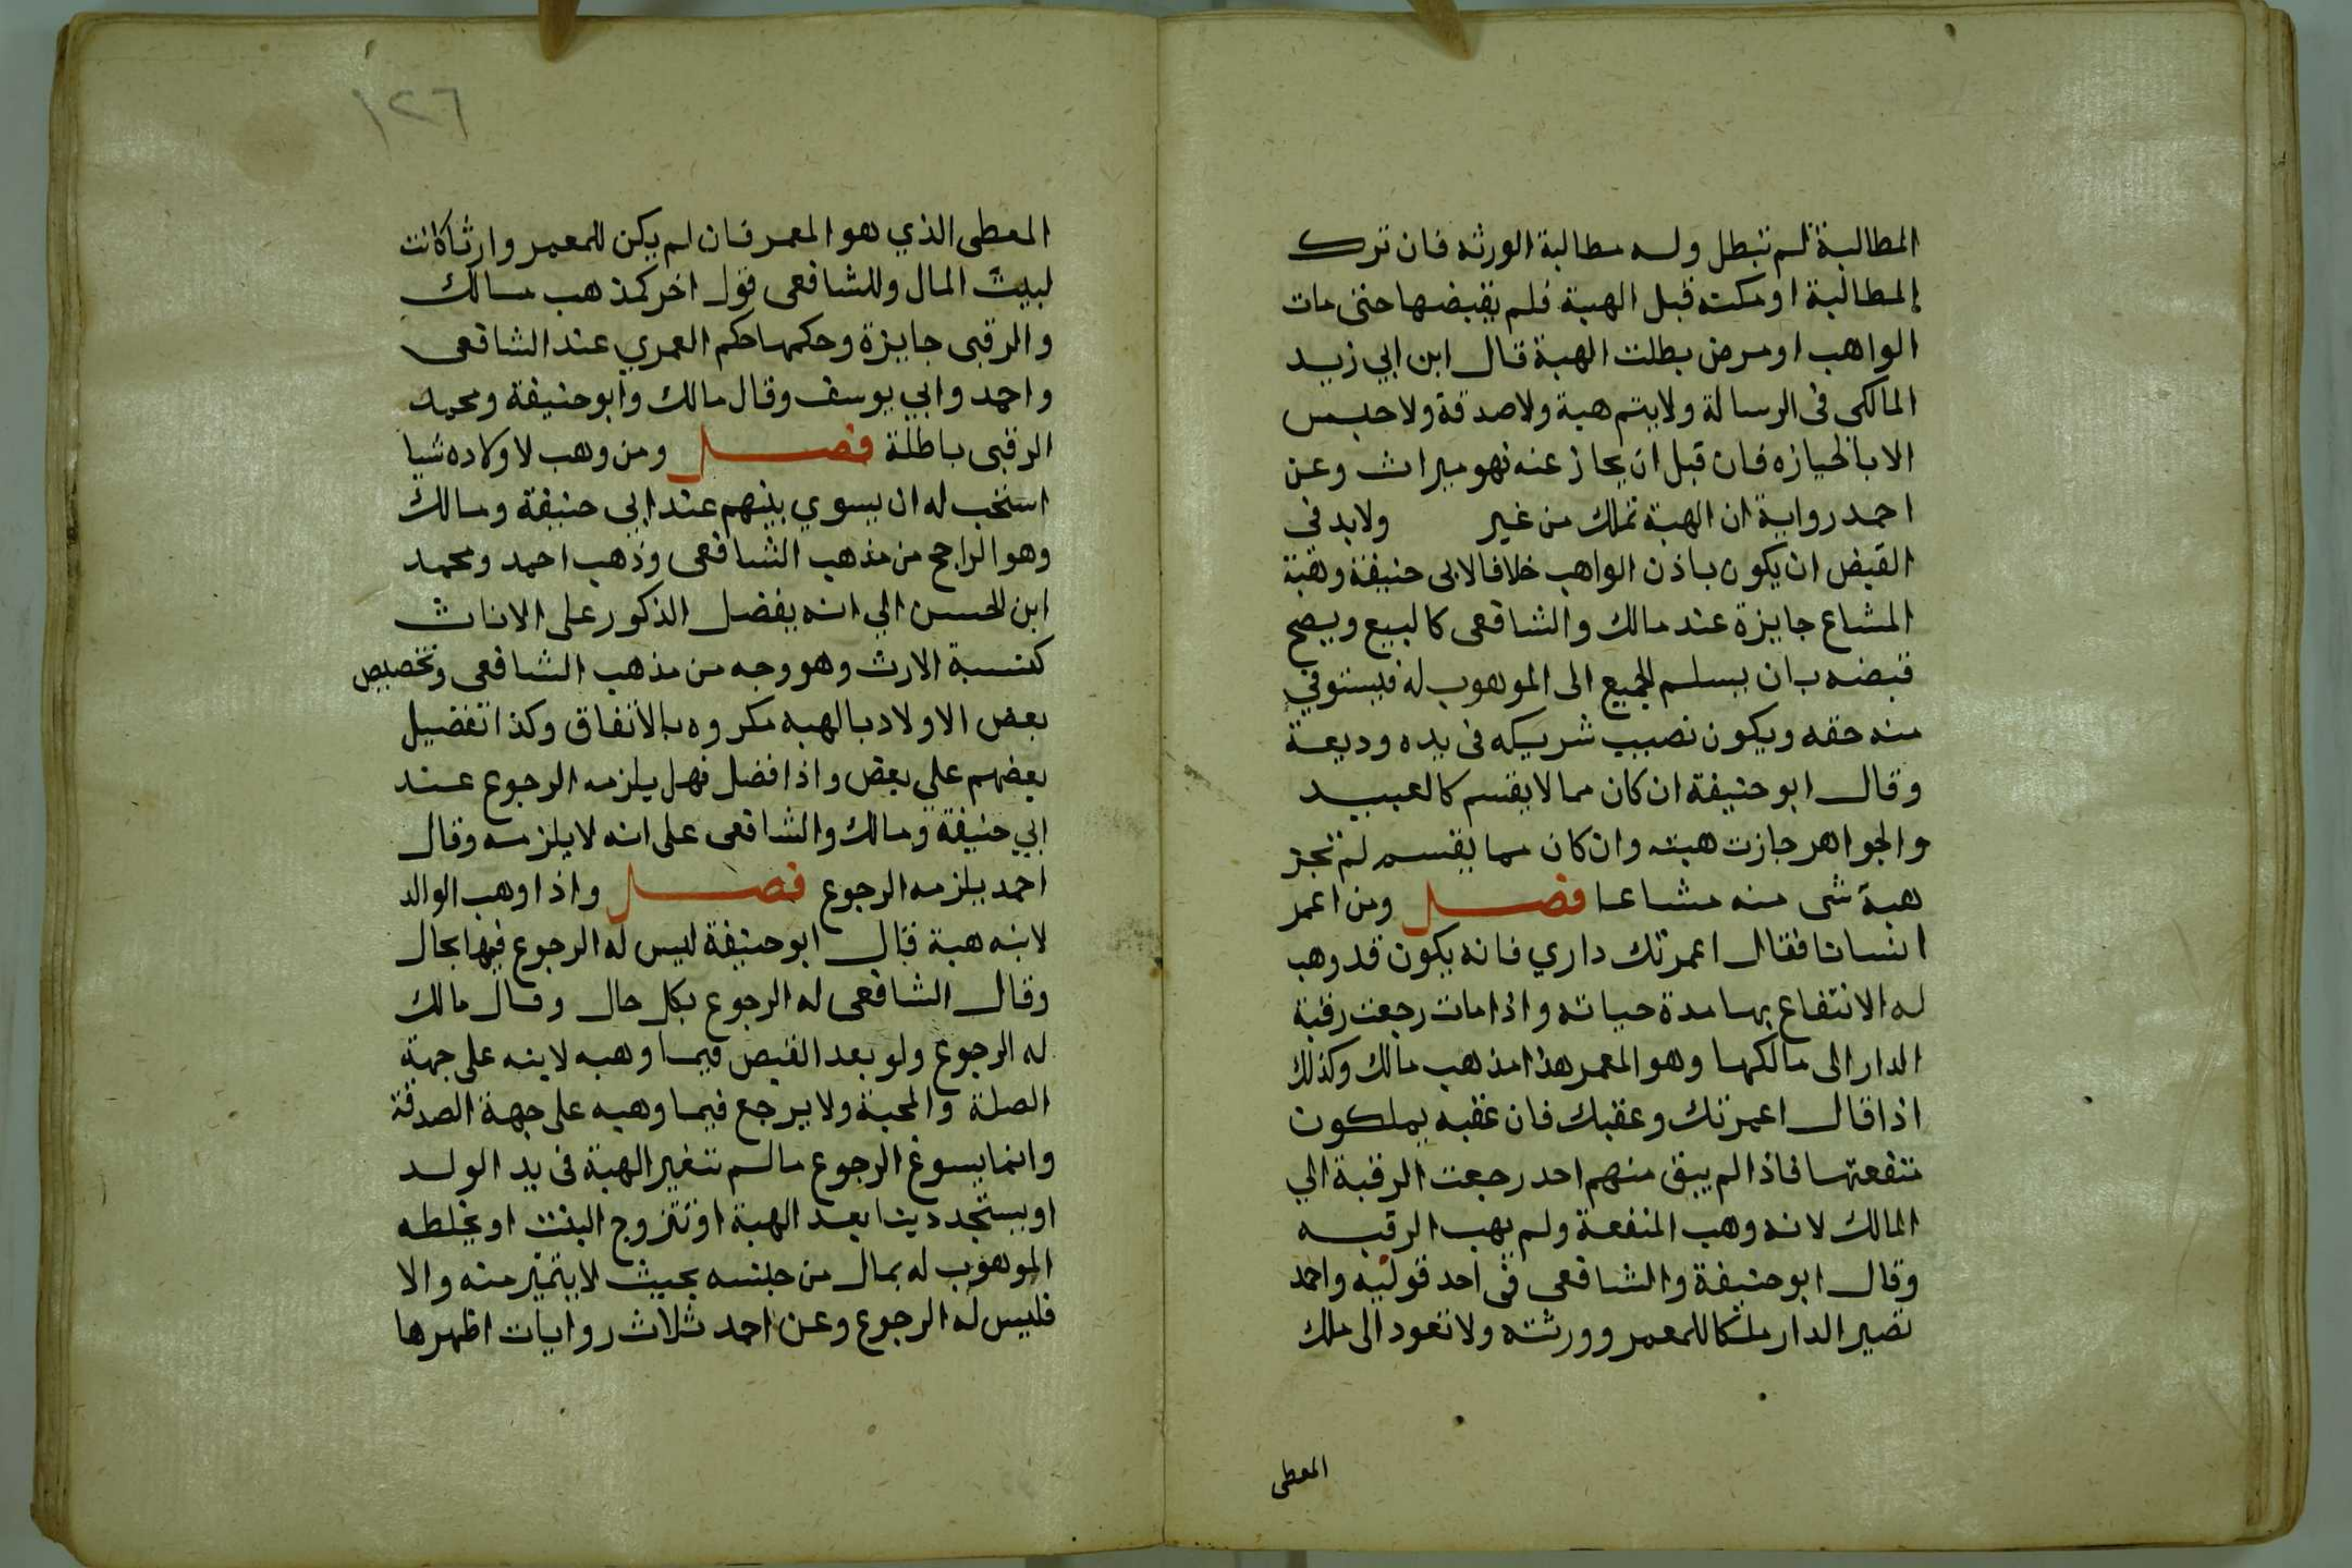 المطالبة لم تبطل وله مطالبة الورثه فان ترك
المطالبة او مكنه قبل الهبة فلم يقبضها حتى مات
الواهب او مرض بطلت الهبة قال ابن ابي زيد
المالكى فى الرسالة ولا يتم هبة ولا صدقة ولا حبس
الا بالحيازه فان قبل ان يحاز عنه فهو ميراث وعن
احمد رواية ان الهبة تملك من غير ولا بد في
القبض ان يكون باذن الواهب خلافا لابى حنيفة وهبة
المشاع جايزة عند مالك والشافعى كالبيع ويصح
قبضه بان يسلم الجميع الى الموهوب له فيستوفي
منه حقه ويكون نصيب شريكه فى يده وديعة
وقال ابو حنيفة ان كان مما لا يقسم كالعبيد
والجواهر جازت هبته وان كان مما يقسم لم تجز
هبة شى منه مشاعا فصل ومن اعمر
انسانا فقال اعمرتك داري فانه يكون قد وهب
له الانتفاع بها مدة حياته واذا مات رجعت رقبة
الدار الى مالكها وهو المعمر هذا مذهب مالك وكذلك
اذا قال اعمرتك وعقبك فان عقبه يملكون
منفعتها فاذا لم يبق منهم احد رجعت الرقبة الي
المالك لانه وهب المنفعة ولم يهب الرقبه
وقال ابو حنيفة والشافعى فى احد قوليه واحمد
تصير الدار ملكا للمعمر وورثته ولا تعود الى ملك
المعطى
١٢٦
المعطى الذي هو المعمر فان لم يكن للمعمر وارثا كانت
لبيت المال وللشافعى قول اخر كمذهب مالك
والرقبى جايزة وحكمها حكم العمري عند الشافعى
واحمد وابي يوسف وقال مالك وابو حنيفة ومحمد
الرقبى باطلة فصل ومن وهب لاولاده شيا
استحب له ان يسوي بينهم عند ابى حنيفة ومالك
وهو الراجح من مذهب الشافعى وذهب احمد ومحمد
ابن الحسن الي انه يفضل الذكور على الاناث
كنسبة الارث وهو وجه من مذهب الشافعى وتخصيص
بعض الاولاد بالهبه مكروه بالاتفاق وكذا تفضيل
بعضهم على بعض واذا فضل فهل يلزمه الرجوع عند
ابي حنيفة ومالك والشافعى على انه لا يلزمه وقال
احمد يلزمه الرجوع فصل واذا وهب الوالد
لابنه هبة قال ابو حنيفة ليس له الرجوع فيها بحال
وقال الشافعى له الرجوع بكل حال وقال مالك
له الرجوع ولو بعد القبض فيما وهبه لابنه على جهة
الصلة والمحبة ولا يرجع فيما وهبه على جهة الصدقة
وانما يسوغ الرجوع ما لم تتغير الهبة فى يد الولد
او يستجد دينا بعد الهبة او تتزوج البنت او يخلطه
الموهوب له بمال من جنسه بحيث لا يتميز منه والا
فليس له الرجوع وعن احمد ثلاث روايات اظهرها